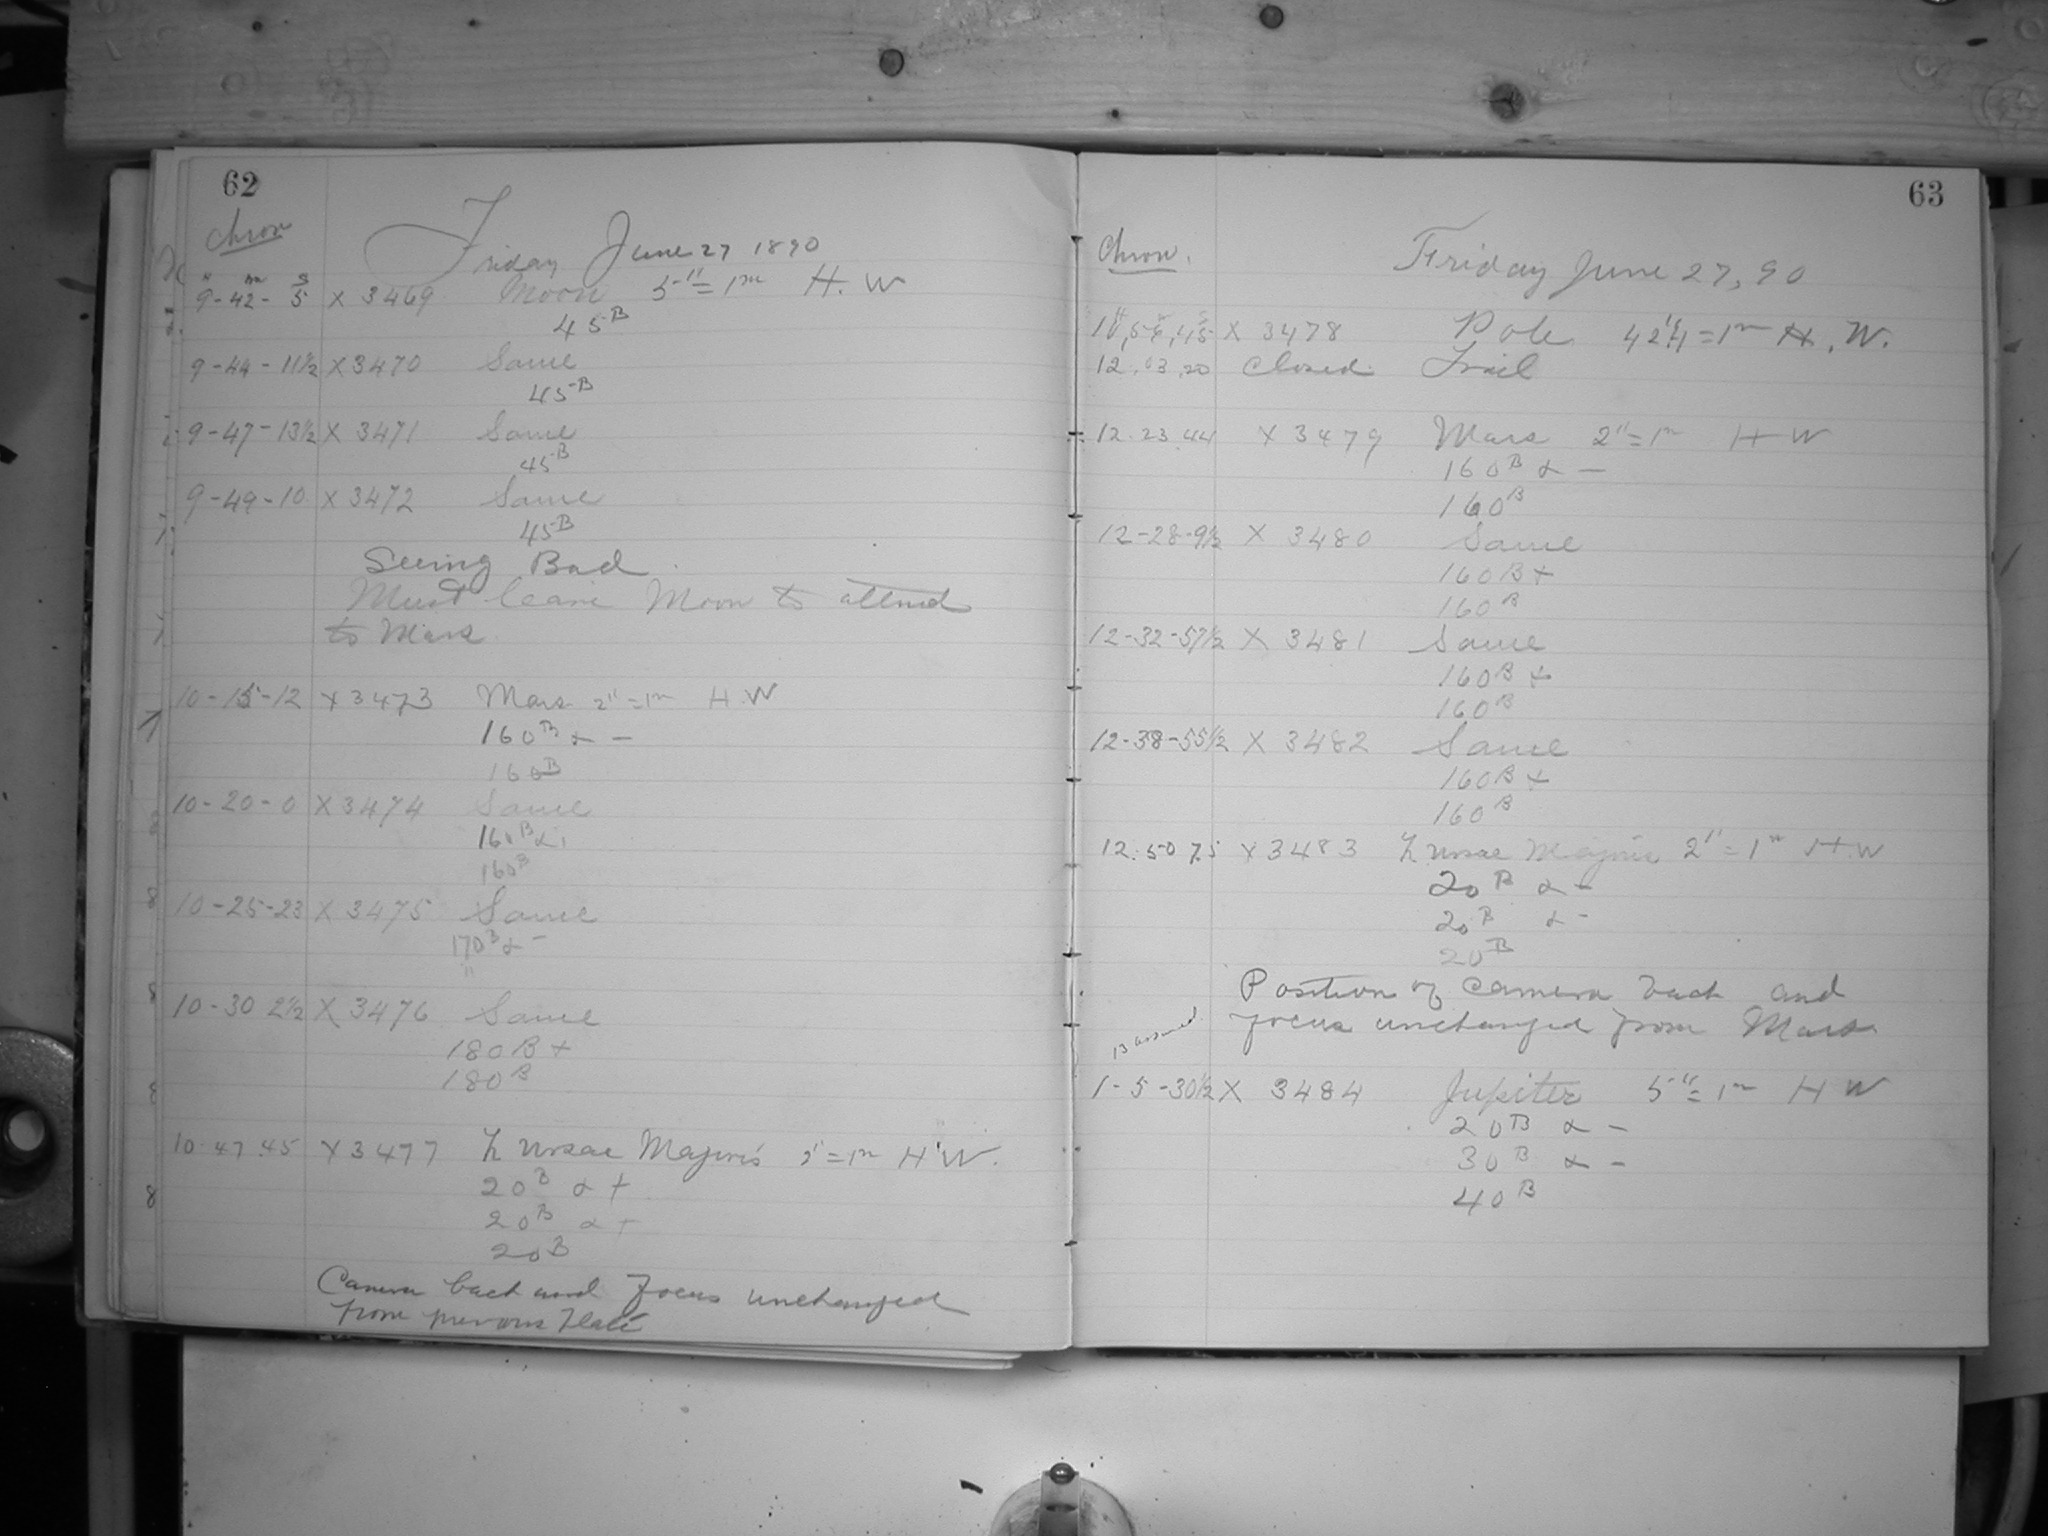 62
Chron
Friday June 27 1890
h m s
9-42-5 X 3469 Moon 5"=1m H. W
45B
9-44-11½ X 3470 Same
45B
9-47-13½ X 3471 Same
45B
9-49-10 X 3472 Same
45B
Seeing Bad.
Must leave Moon to attend
to Mars
10-15-12 X 3473 Mars 2"=1m H.W
160B α -
160B
10-20-0 X 3474 Same
160B α
160B
10-25-23 X 3475 Same
170B α -
"
10-30 2½ X 3476 Same
180B +
180B
10.47.45 X 3477 ζ Ursae Majoris 2"=1m H.W.
20B α +
20B α +
20B
Camera back and focus unchanged
from previous Plate
63
Chron.
Friday June 27, 90
X 3478 Pole 42¼"=1m H. W.
12.03.20 Closed Trail
12.23 44 X 3479 Mars 2"=1m H W
160B α -
160B
12-28-9½ X 3480 Same
160B +
160B
12-32-57½ X 3481 Same
160B +
160B
12-38-55½ X 3482 Same
160B +
160B
12.50 7.5 X 3483 ζ Ursae Majoris 2"=1m H.W
20B α -
20B α -
20B
Position of Camera back and
focus unchanged from Mars
1-5-30½ X 3484 Jupiter 5"=1m H W
20B α -
30B α -
40B